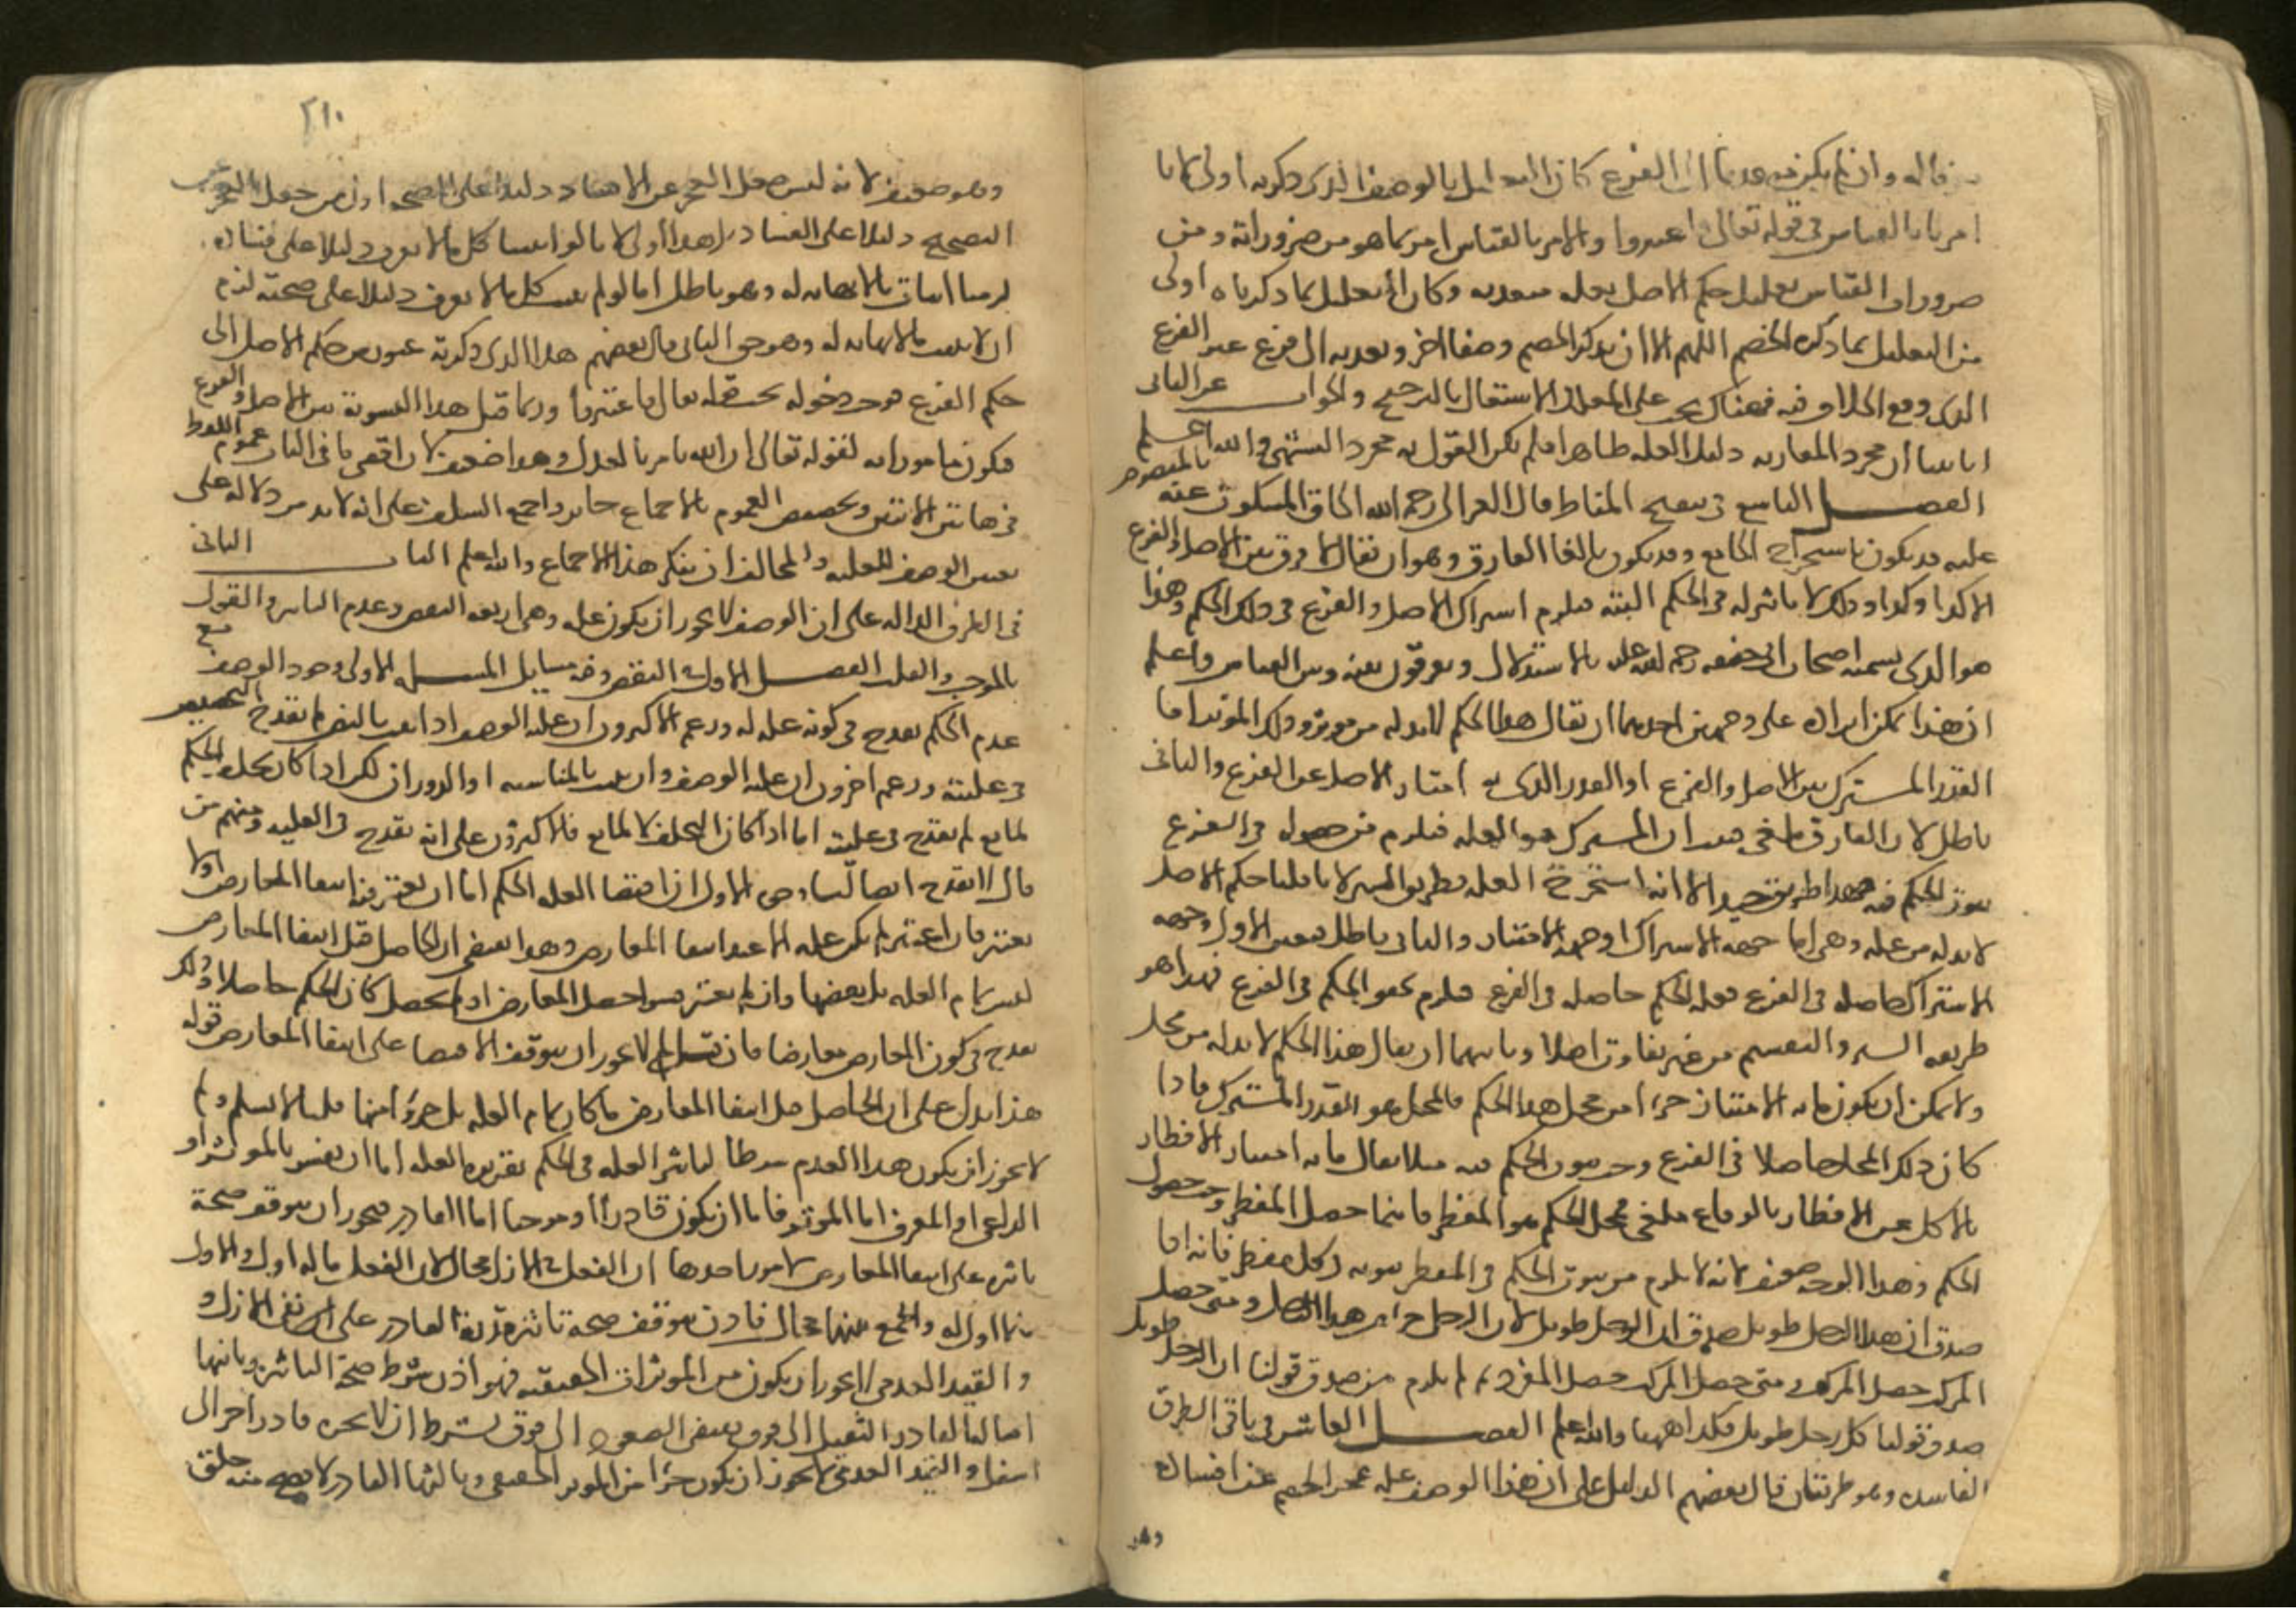 فاله وان لم يكن متعديا الى الفرع كان التعليل بالوصف الذى ذكرته اولى لانا
امرنا بالقياس فى قوله تعالى فاعتبروا والامر بالقياس امر بما هو من ضروراته ومن
ضرورات القياس تعليل حكم الاصل بعلة متعدية وكان التعليل بما ذكرناه اولى
من التعليل بما ذكره الخصم اللهم الا ان يذكر الخصم وصفا اخر ويعديه الى فرع غير الفرع
الذى وقع الخلاف فيه فهناك يجب على المعلل الاشتغال بالترجيح والجواب عن الثانى
انا بينا ان مجرد المقارنة دليل العلة ظاهرا فلم يكن القول به مجرد التشهى والله اعلم
الفصل التاسع فى تنقيح المناط قال الغزالى رحمه الله الحاق المسكوت عنه بالمنصوص
عليه قد يكون باستخراج الجامع وقد يكون بالغا الفارق وهو ان يقال لا فرق بين الاصل والفرع
الا كذا وكذا وذلك لا تاثير له فى الحكم البتة فيلزم اشتراك الاصل والفرع فى ذلك الحكم وهذا
هو الذى يسميه اصحاب ابى حنيفة رحمة الله عليه بالاستدلال ويفرقون بينه وبين القياس واعلم
ان هذا يمكن ايراده على وجهين احدهما ان يقال هذا الحكم لابد له من موثر وذلك الموثر اما
القدر المشترك بين الاصل والفرع او القدر الذى به امتاز الاصل عن الفرع والثانى
باطل لان الفارق ملغى فثبت ان المشترك هو العلة فيلزم من حصوله فى الفرع
ثبوت الحكم فيه فهذا طريق جيد الا انه استخراج العلة بطريق السبر لانا قلنا حكم الاصل
لابد له من علة وهى اما جهة الاشتراك او جهة الامتياز والثانى باطل فتعين الاول وجهة
الاشتراك حاصلة فى الفرع فعلة الحكم حاصلة فى الفرع فيلزم تحقق الحكم فى الفرع فهذا هو
طريقة السبر والتقسيم من غير تفاوت اصلا وثانيهما ان يقال هذا الحكم لابد له من محل
ولا يمكن ان يكون ما به الامتياز جزءا من محل هذا الحكم فالمحل هو القدر المشترك فاذا
كان ذلك المحل حاصلا فى الفرع وجب ثبوت الحكم فيه مثلا يقال ما به امتياز الافطار
بالاكل عن الافطار بالوقاع ملغى فمحل الحكم هو المفطر فاينما حصل المفطر وجب حصول
الحكم وهذا الوجه ضعيف لانه لا يلزم من ثبوت الحكم فى المفطر ثبوته فى كل مفطر فانه اذا
صدق ان هذا الرجل طويل صدق ان الرجل طويل لان الرجل جزء من هذا الرجل ومتى حصل
المركب حصل المفرد ثم لم يلزم من صدق قولنا ان الرجل طويل
صدق قولنا كل رجل طويل فكذا ههنا والله اعلم الفصل العاشر فى باقى الطرق
الفاسدة وهو طريقان قال بعضهم الدليل على ان هذا الوصف علة عجز الخصم عن افساده
وهو
٢١٠
وهو ضعيف لانه ليس جعل العجز عن الافساد دليلا على الصحة اولى من جعل العجز عن
التصحيح دليلا على الفساد بل هذا اولى لانا لو اثبتنا كل ما لا نعرف دليلا على فساده
لزمنا اثبات ما لا نهاية له وهو باطل اما لو لم نثبت كل ما لا نعرف دليلا على صحته لزم
ان لا نثبت ما لا نهاية له وهو حق الثانى قال بعضهم هذا الذى ذكرته عبور من حكم الاصل الى
حكم الفرع فوجب دخوله تحت قوله تعالى فاعتبروا وربما قيل هذا التسوية بين الاصل والفرع
فيكون مامورا به لقوله تعالى ان الله يامر بالعدل وهذا ضعيف لان اقصى ما فى الباب عموم اللفظ
فى هاتين الايتين وتخصيص العموم بالاجماع جايز واجمع السلف على انه لابد من دلالة على
تعيين الوصف للعلية وللمخالف ان ينكر هذا الاجماع والله اعلم الباب الثانى
فى الطرق الدالة على ان الوصف لا يجوز ان يكون علة وهى اربعة النقض وعدم التاثير والقول
بالموجب والقلب الفصل الاول فى النقض وفيه مسايل المسلة الاولى وجود الوصف مع
عدم الحكم يقدح فى كونه علة له وزعم الاكثرون ان علية الوصف اذا ثبت بالنص لم يقدح التخصيص
فى عليته وزعم اخرون ان علية الوصف وان ثبت بالمناسبة او الدوران لكن اذا كان تخلف الحكم
لمانع لم يقدح فى عليته اما اذا كان التخلف لا لمانع فالاكثرون على انه يقدح فى العلية ومنهم من
قال لا يقدح ايضا لنا وجوه الاول ان اقتضا العلة الحكم اما ان يعتبر فيه انتفا المعارض او لا
يعتبر فان اعتبر لم يكن علة الا عند انتفا المعارض وهذا يقتضى ان الحاصل قبل انتفا المعارض
ليس تمام العلة بل بعضها وان لم يعتبر فسوا حصل المعارض او لم يحصل كان الحكم حاصلا وذلك
يقدح فى كون المعارض معارضا فان قيل لم لا يجوز ان يتوقف الاقتضا على انتفا المعارض قوله
هذا يدل على ان الحاصل قبل انتفا المعارض ما كان تمام العلة بل جزءا منها قلنا لا نسلم ولم
لا يجوز ان يكون هذا العدم شرطا لتاثير العلة فى الحكم تقريره العلة اما ان يفسر بالموثر او
الداعى او المعرف اما الموثر فاما ان يكون قادرا او موجبا اما القادر فيجوز ان يتوقف صحة
تاثيره على انتفا المعارض لامور احدها ان الفعل فى الازل محال لان الفعل ما له اول والازل
ما لا اول له والجمع بينهما محال فاذن يتوقف صحة تاثير قدرة القادر على نفى الازل و
والقيد العدمى لا يجوز ان يكون من الموثرات الحقيقية فهو اذن شرط صحة التاثير وثانيها
اصالنا القادر الثقيل الى فوق يقتضى الصعود الى فوق بشرط ان لا يجره قادر اخر الى
اسفل والقيد العدمى لا يجوز ان يكون جزءا من الموثر الحقيقى وثالثها القادر لا يصح منه خلق